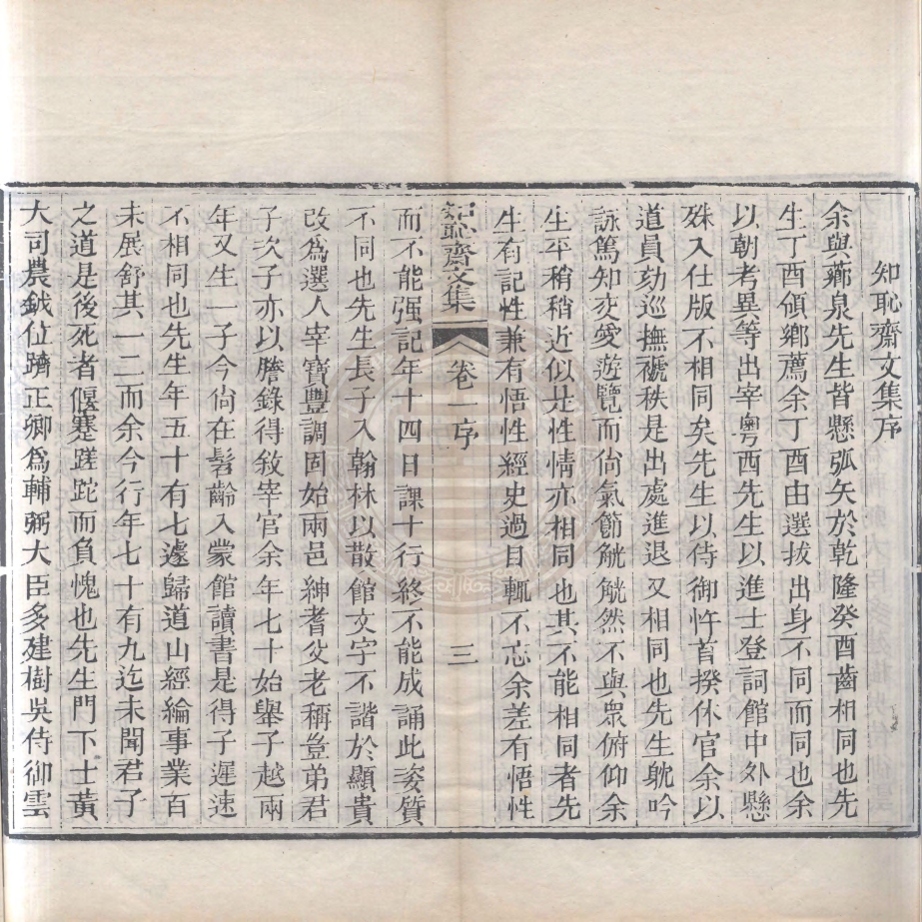 知恥齋文集序
余與薌泉先生皆懸弧矢於乾隆癸酉齒相同也先
生丁酉領鄉薦余丁酉由選拔出身不同而同也余
以朝考異等出宰粵西先生以進士登詞館中外懸
殊入仕版不相同矣先生以侍御忤首揆休官余以
道員劾巡撫褫秩是出處進退又相同也先生躭吟
詠篤知交愛遊覽而尙氣節觥觥然不與衆俯仰余
生平稍稍近似是性情亦相同也其不能相同者先
生有記性兼有悟性經史過目輒不忘余差有悟性
知恥齋文集 卷一序 三
而不能强記年十四日課十行終不能成誦此姿質
不同也先生長子入翰林以散館文字不諧於顯貴
改爲選人宰寶豐調固始兩邑紳耆父老稱豈弟君
子次子亦以謄錄得敘宰官余年七十始舉子越兩
年又生一子今尙在髫齡入蒙館讀書是得子遲速
不相同也先生年五十有七遽歸道山經綸事業百
未展舒其一二而余今行年七十有九迄未聞君子
之道是後死者偃蹇蹉跎而負愧也先生門下士黃
大司農鉞位躋正卿爲輔弼大臣多建樹吳侍御雲